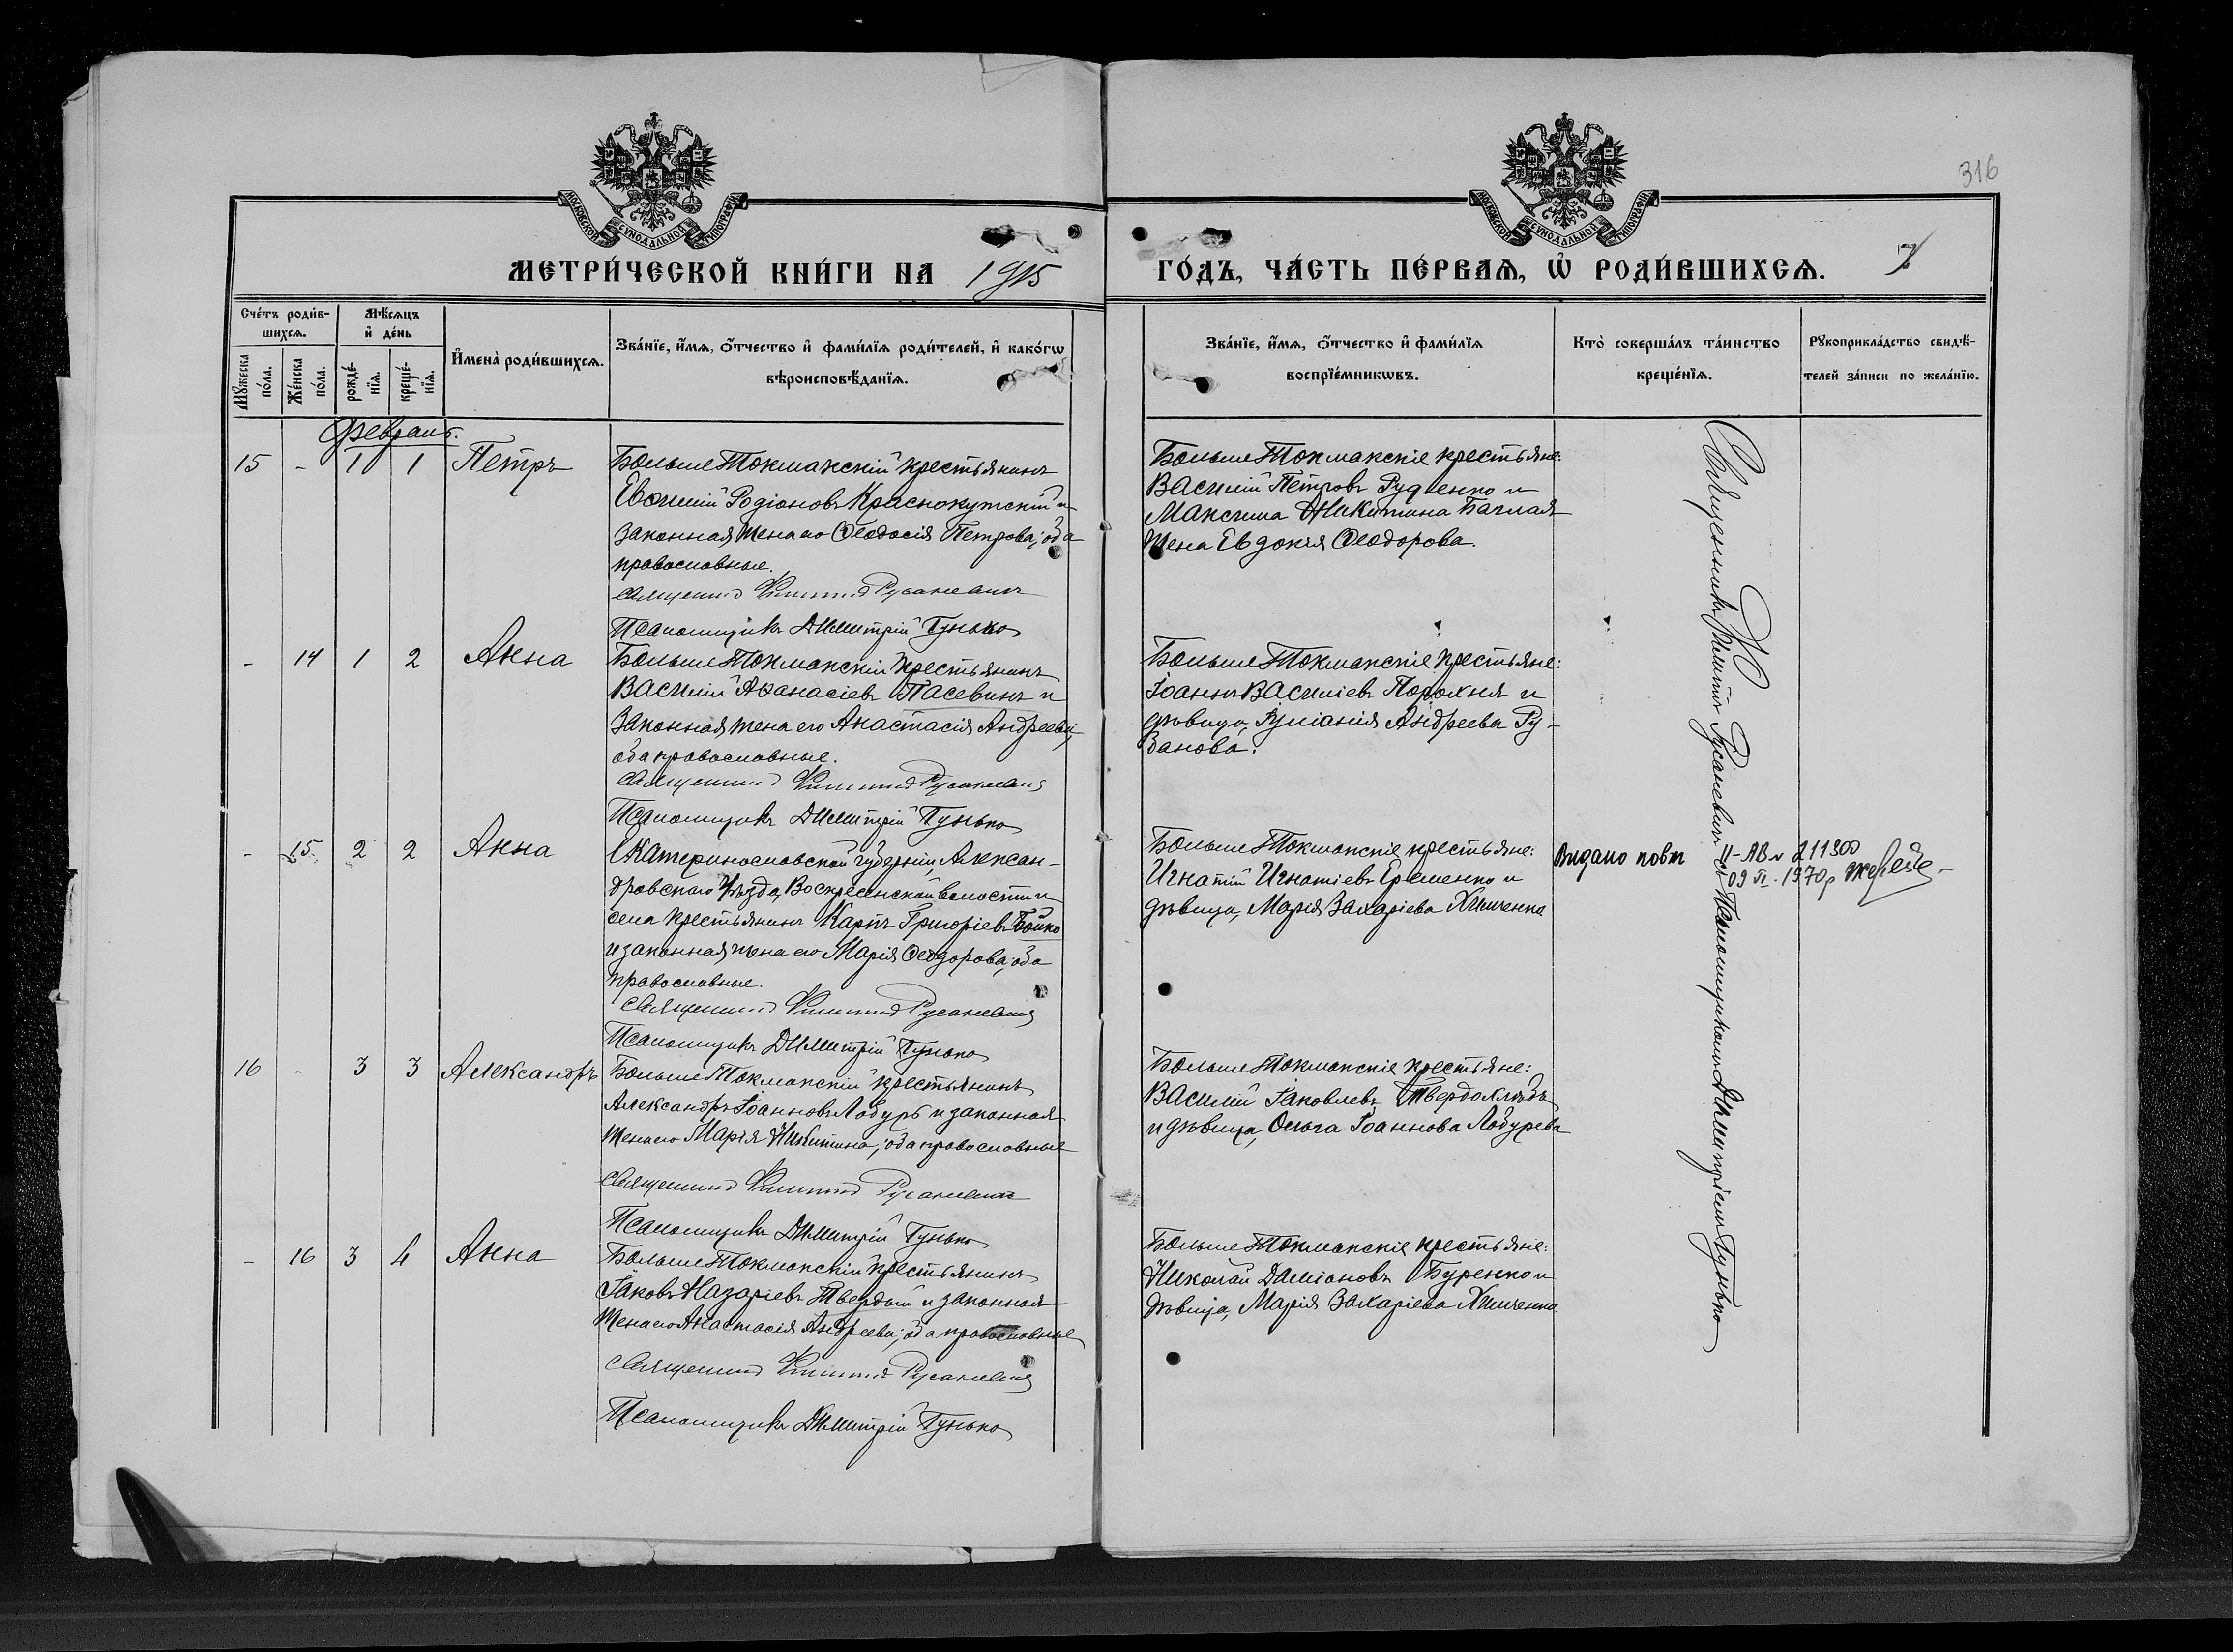 316
МОСКОВСКОЙ СУНОДАЛЬНОЙ ТИПОГРАФІИ
МОСКОВСКОЙ СУНОДАЛЬНОЙ ТИПОГРАФІИ
МЕТРИ́ЧЕСКОЙ КНИ́ГИ НА 1915
ГО́ДЪ, ЧА́СТЬ ПЕ́РВАѦ, Ѽ РОДИ́ВШИХСѦ. 7
Сче́тъ роди́в-
шихсѧ.
Мꙋ́жеска по́ла.
Же́нска по́ла.
Мѣ́сѧцъ
и҆ де́нь
рожде́-
нїѧ.
креще́-
нїѧ.
И҆мена̀ роди́вшихсѧ.
Зва́нїе, и҆́мѧ, ѻ҆́тчество и҆ фами́лїѧ роди́телей, и҆ како́гѡ
вѣроисповѣ́данїѧ.
Зва́нїе, и҆́мѧ, ѻ҆́тчество и҆ фами́лїѧ
воспрїе́мникѡвъ.
Кто̀ соверша́лъ та́инство
креще́нїѧ.
Рꙋкоприкла́дство свидѣ́-
телей за́писи по жела́нїю.
Февраль.
15 - 1 1 Петръ
Больше Токмакскій крестьянинъ
Евѳимій Родіоновъ Краснокутскій и
законная жена его Ѳеодосія Петрова; оба
православные.
Священникъ Филиппъ Русаневичъ
Псаломщикъ Димитрій Гунько
Больше Токмакскіе крестьяне:
Василій Петровъ Руденко и
Максима Никитина Баглая
жена Евдокія Ѳеодорова.
- 14 1 2 Анна
Больше Токмакскій крестьянинъ
Василій Аѳанасіевъ Пасевинъ и
законная жена его Анастасія Андреева,
оба православные.
Священникъ Филиппъ Русаневичъ
Псаломщикъ Димитрій Гунько
Больше Токмакскіе крестьяне:
Іоаннъ Василіевъ Порохня и
дѣвица, Іуліанія Андреева Ру-
банова.
- 15 2 2 Анна
Екатеринославской губерніи, Алексан-
дровскаго уѣзда, Воскресенской волости и
села крестьянинъ Карпъ Григоріевъ Бойко
и законная жена его Марія Ѳеодорова, оба
православные.
Священникъ Филиппъ Русаневичъ
Псаломщикъ Димитрій Гунько
Больше Токмакскіе крестьяне:
Игнатій Игнатіевъ Еременко и
дѣвица, Марія Захаріева Химченко
Видано повт II-АВ № 211300
09 VI. 1970р
16 - 3 3 Александръ
Больше Токмакскій крестьянинъ
Александръ Іоанновъ Лабурь и законная
жена его Марія Никитина; оба православные
Священникъ Филиппъ Русаневичъ
Псаломщикъ Димитрій Гунько
Больше Токмакскіе крестьяне:
Василій Іаковлевъ Твердохлѣбъ
и дѣвица, Ольга Іоаннова Лабурева
- 16 3 4 Анна
Больше Токмакскій крестьянинъ
Іаковъ Назаріевъ Твердый и законная
жена его Анастасія Андреева; оба православные
Священникъ Филиппъ Русаневичъ
Псаломщикъ Димитрій Гунько
Больше Токмакскіе крестьяне:
Николай Даміановъ Буренко и
дѣвица, Марія Захаріева Химченко
Священникъ Филиппъ Русаневичъ съ Псаломщикомъ Димитріемъ Гунько